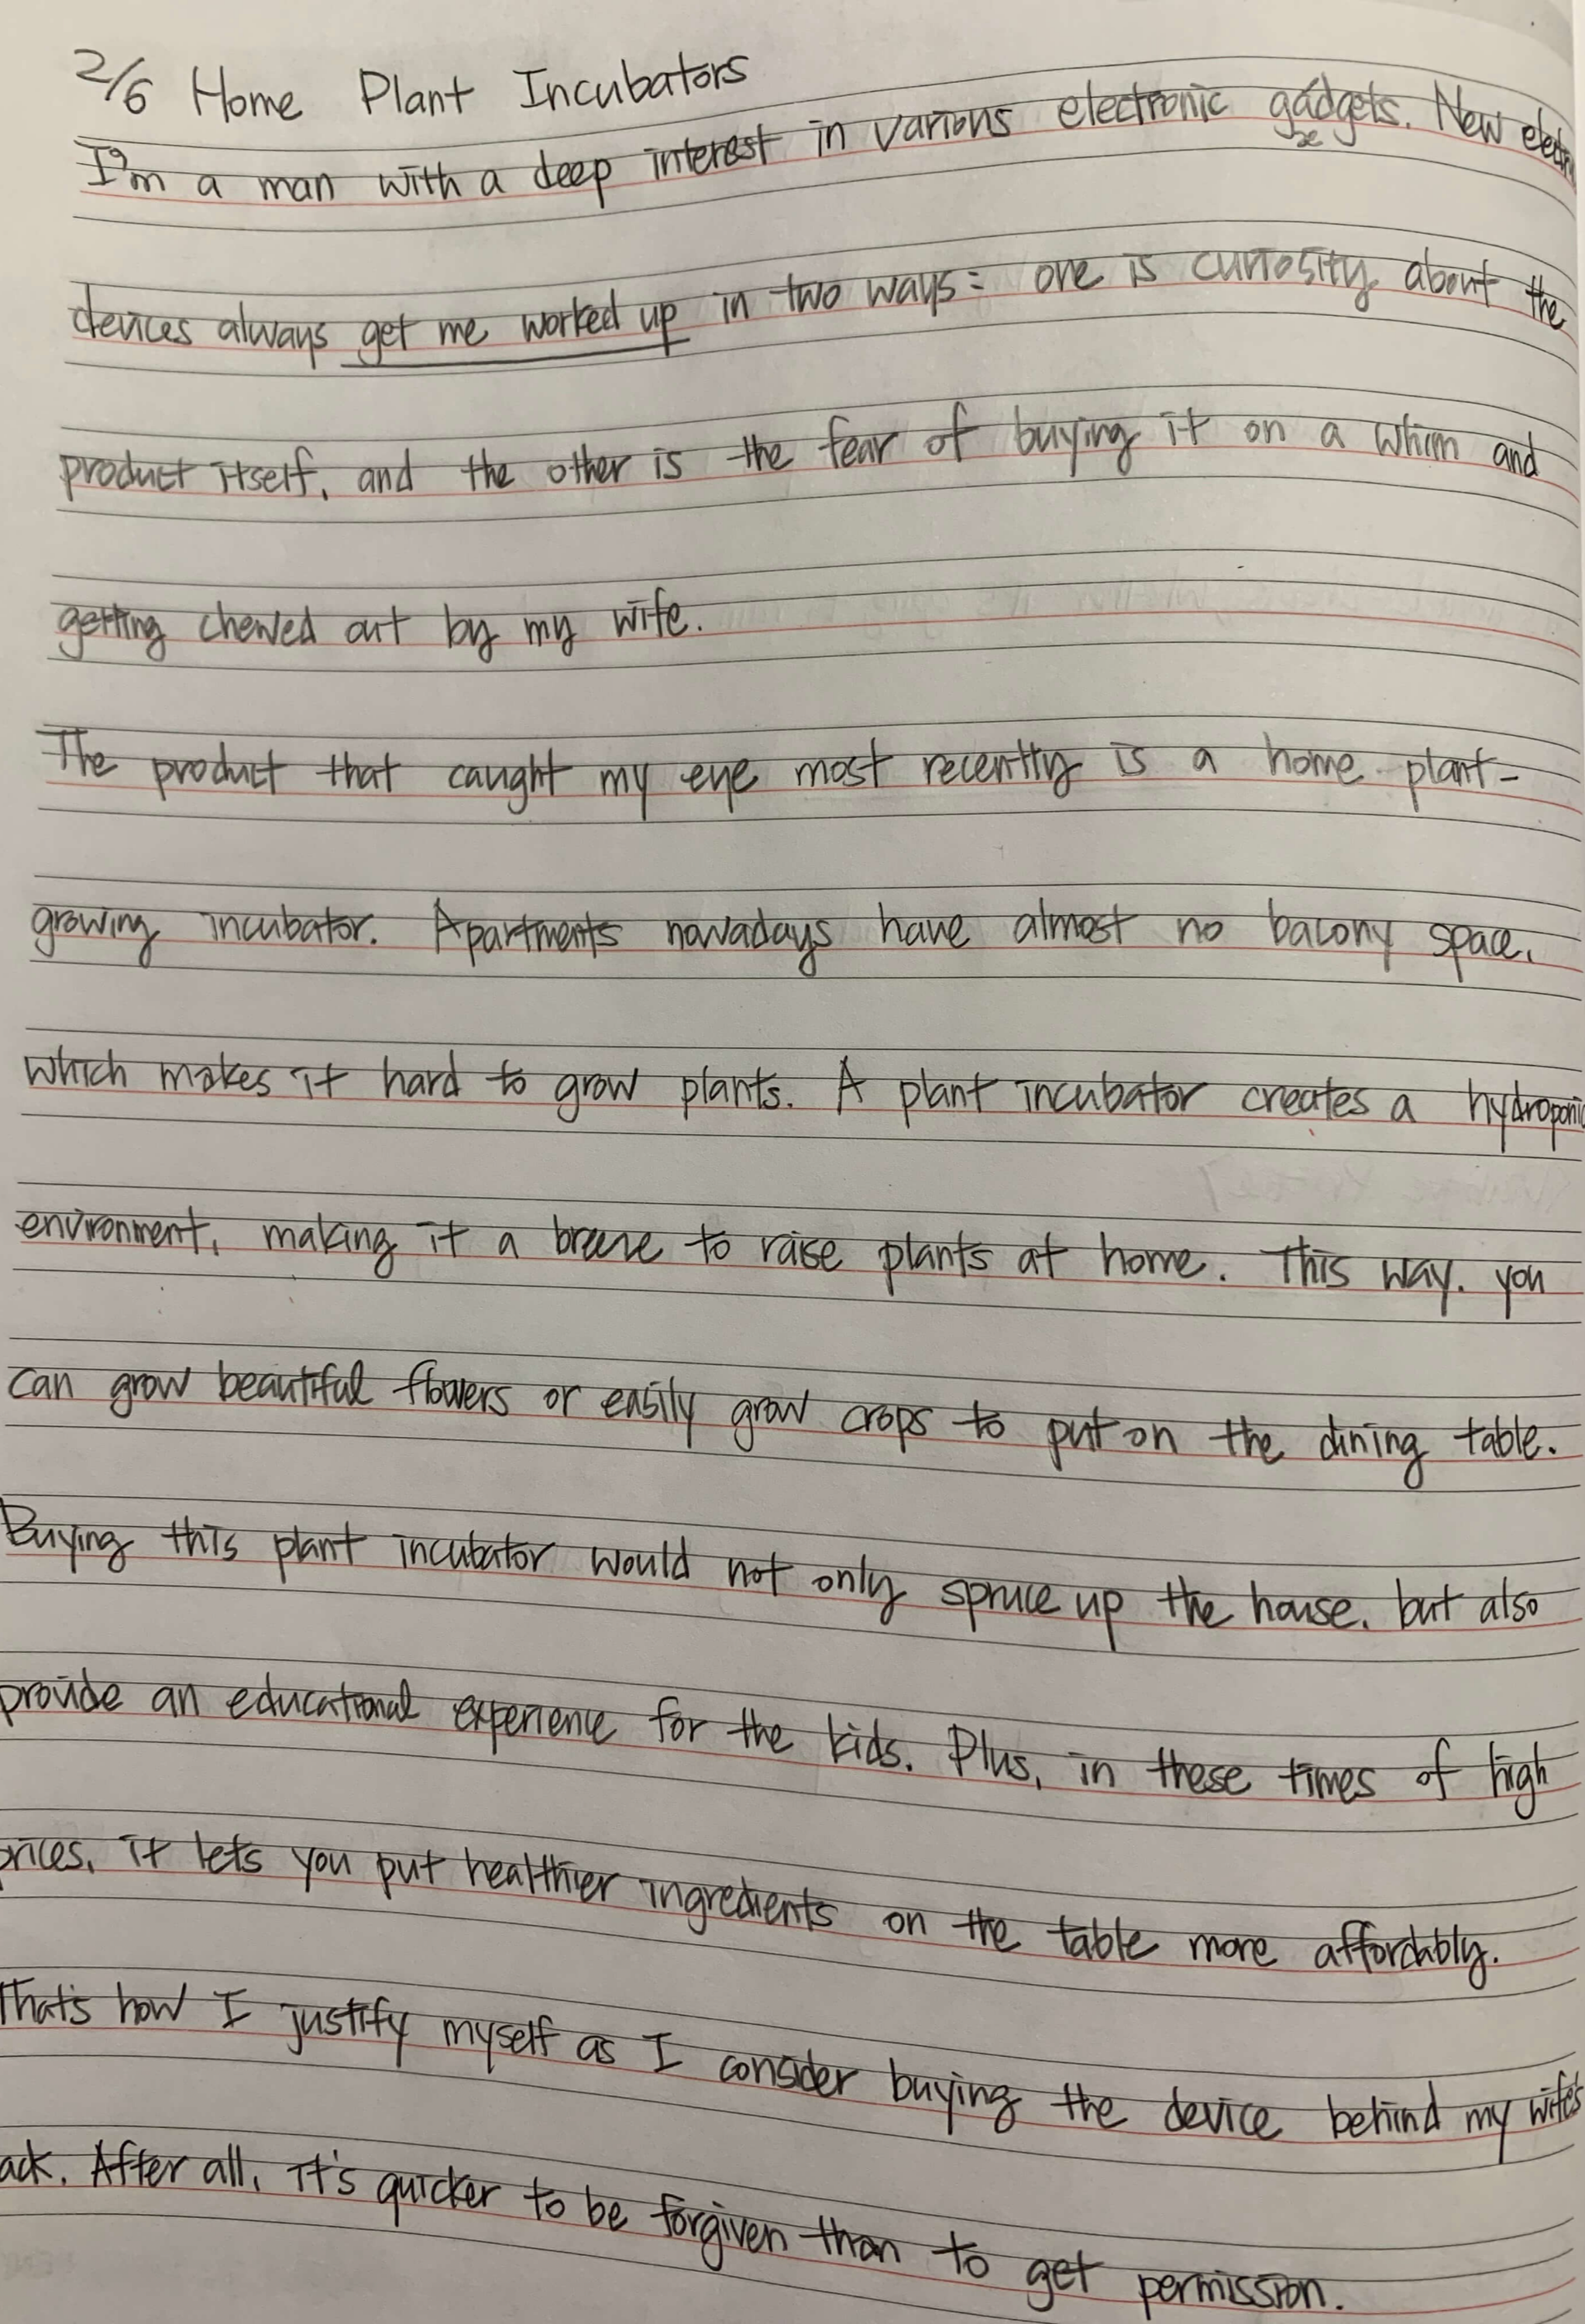 2/6 Home Plant Incubators
I'm a man with a deep interest in various electronic gadgets. New
devices always get me worked up in two ways: one is curiosity about the
product itself, and the other is the fear of buying it on a whim and
getting chewed out by my wife.
The product that caught my eye most recently is a home plant-
growing incubator. Apartments nowadays have almost no balcony space,
which makes it hard to grow plants. A plant incubator creates a hydroponic
environment, making it a breeze to raise plants at home. This way, you
can grow beautiful flowers or easily grow crops to put on the dining table.
Buying this plant incubator would not only spruce up the house, but also
provide an educational experience for the kids. Plus, in these times of high
prices, it lets you put healthier ingredients on the table more affordably.
That's how I justify myself as I consider buying the device behind my wife's
ack. After all, it's quicker to be forgiven than to get permission.